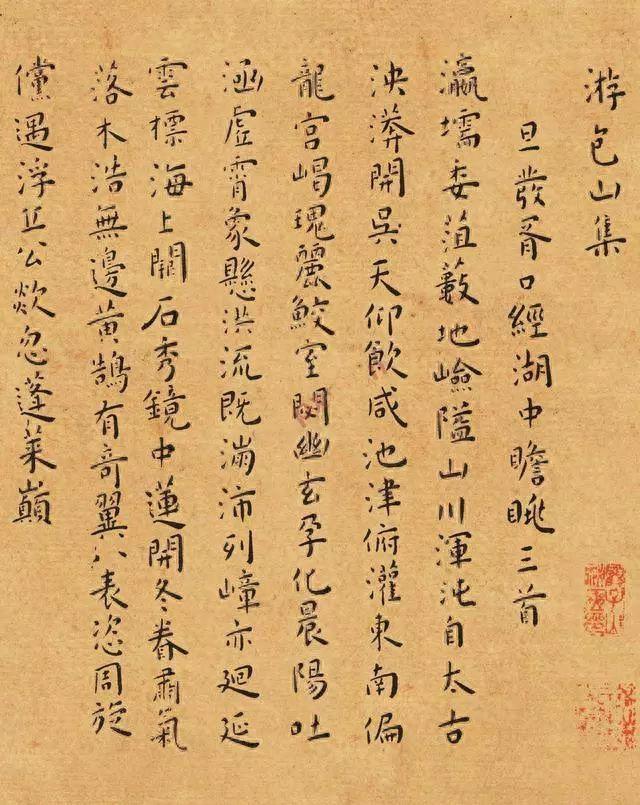 游包山集
旦發胥口經湖中瞻眺三首
瀛壖委菹藪地嶮隘山川渾沌自太古
泱漭開吳天仰飲咸池津俯灌東南偏
龍宮崵瑰麗鮫室閟幽玄孕化晨陽吐
涵虛霄象懸洪流既瀰沛列嶂亦迴延
雲標海上關石秀鏡中蓮開冬眷肅氣
落木浩無邊黃鵠有奇翼八表恣周旋
儻遇浮丘公欻忽蓬萊巔